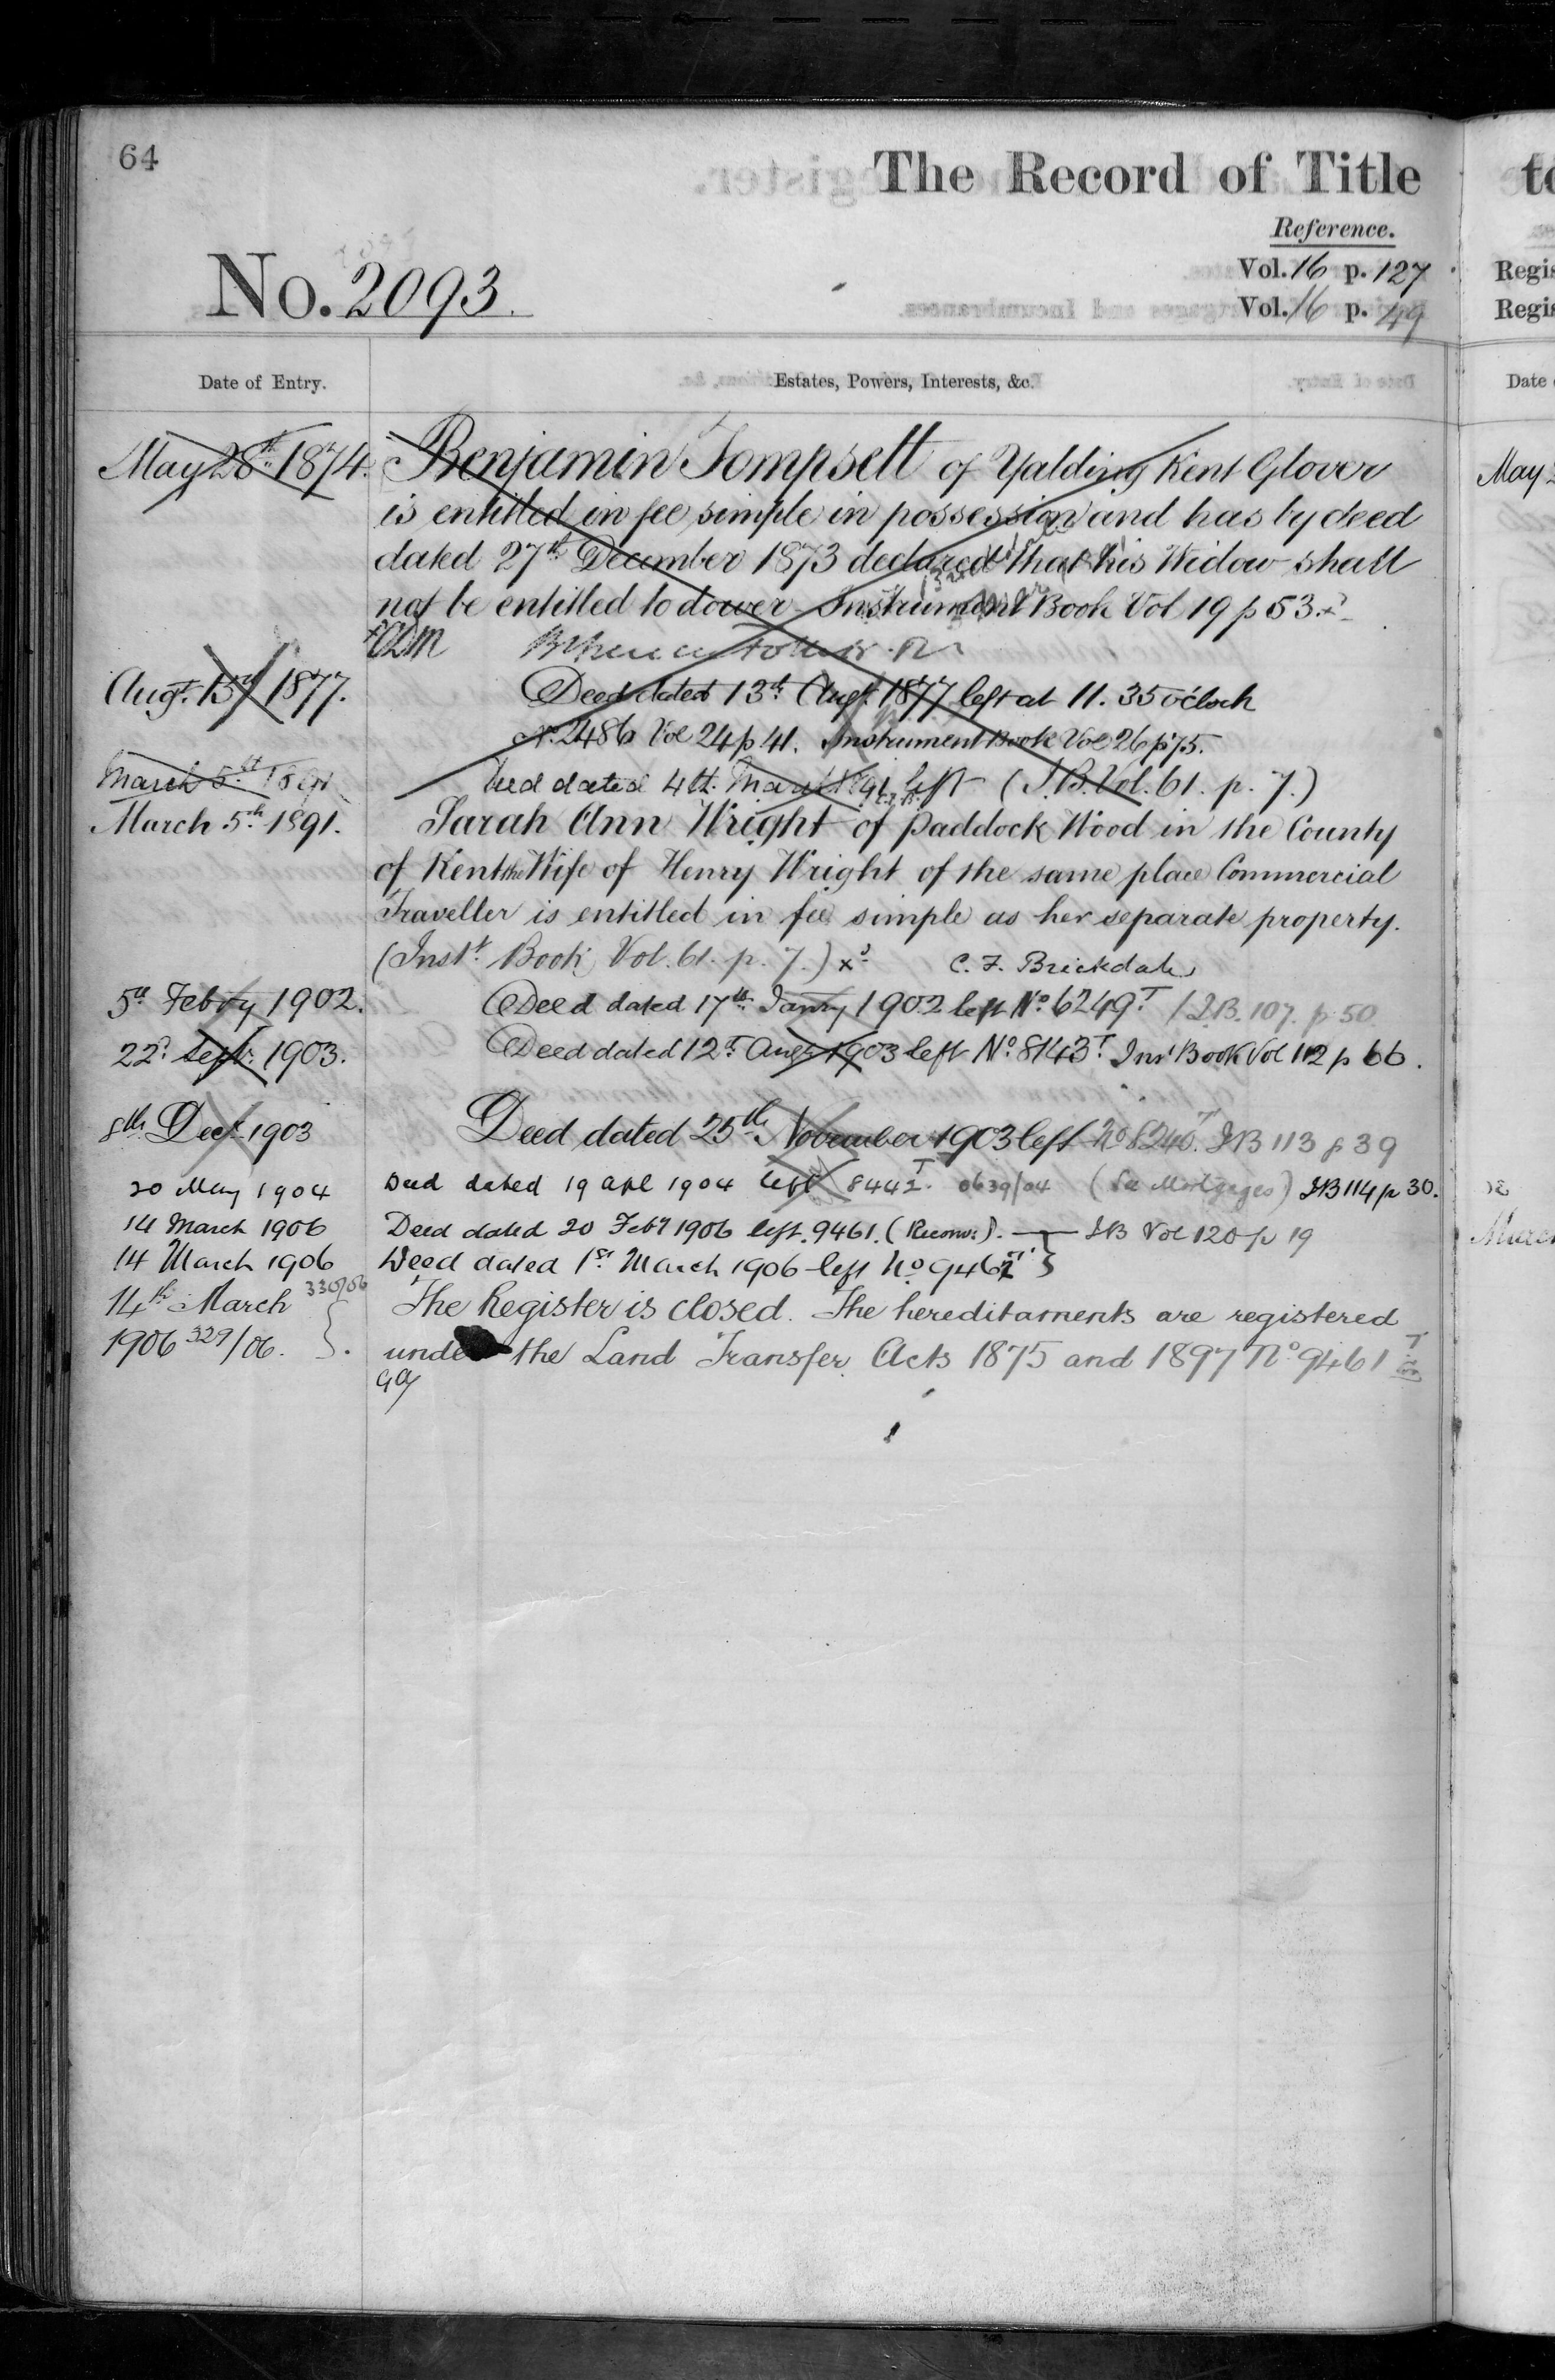 64
The Record of Title
Reference.
Vol. 16 p. 127
No. 2093.
Vol. 16 p. 49
Date of Entry.
Estates, Powers, Interests, &c.
May 28th 1874. Benjamin Tompsett of Yalding Kent Glover
is entitled in fee simple in possession and has by deed
dated 27th December 1873 declared that his Widow shall
not be entitled to dower Instrument Book Vol 19 p 53.
Augt. 13th 1877. Deed dated 13th Augt. 1877 left at 11.35 o'clock
No. 2486 Vol 24 p 41. Instrument Book Vol 26 p 75.
March 5th 1891 Deed dated 4th. March 1891 left (I.B. Vol. 61. p. 7.)
March 5th 1891. Sarah Ann Wright of Paddock Wood in the County
of Kent the Wife of Henry Wright of the same place Commercial
Traveller is entitled in fee simple as her separate property.
(Inst. Book Vol. 61. p. 7.) C. F. Brickdale
5th Febry 1902. Deed dated 17th Janry 1902 left No. 6249T I.B. 107. p. 50
22d Sept. 1903. Deed dated 12th Augt 1903 left No. 8143T. Inst Book Vol 112 p 66.
8th Dec 1903 Deed dated 25th November 1903 left No 8240T. IB 113 p 39
20 May 1904 Deed dated 19 Apl 1904 left 8442T. 0639/04 (See Mortgages) IB 114 p 30.
14 March 1906 Deed dated 20 Feby 1906 left. 9461. (Reconv.). — IB Vol 120 p 19
14 March 1906 Deed dated 1st March 1906 left No 9462
14th March 330/06 The Register is closed. The hereditaments are registered
1906 329/06. under the Land Transfer Acts 1875 and 1897 No. 9461 T
to
Regis
Regis
Date
May
March